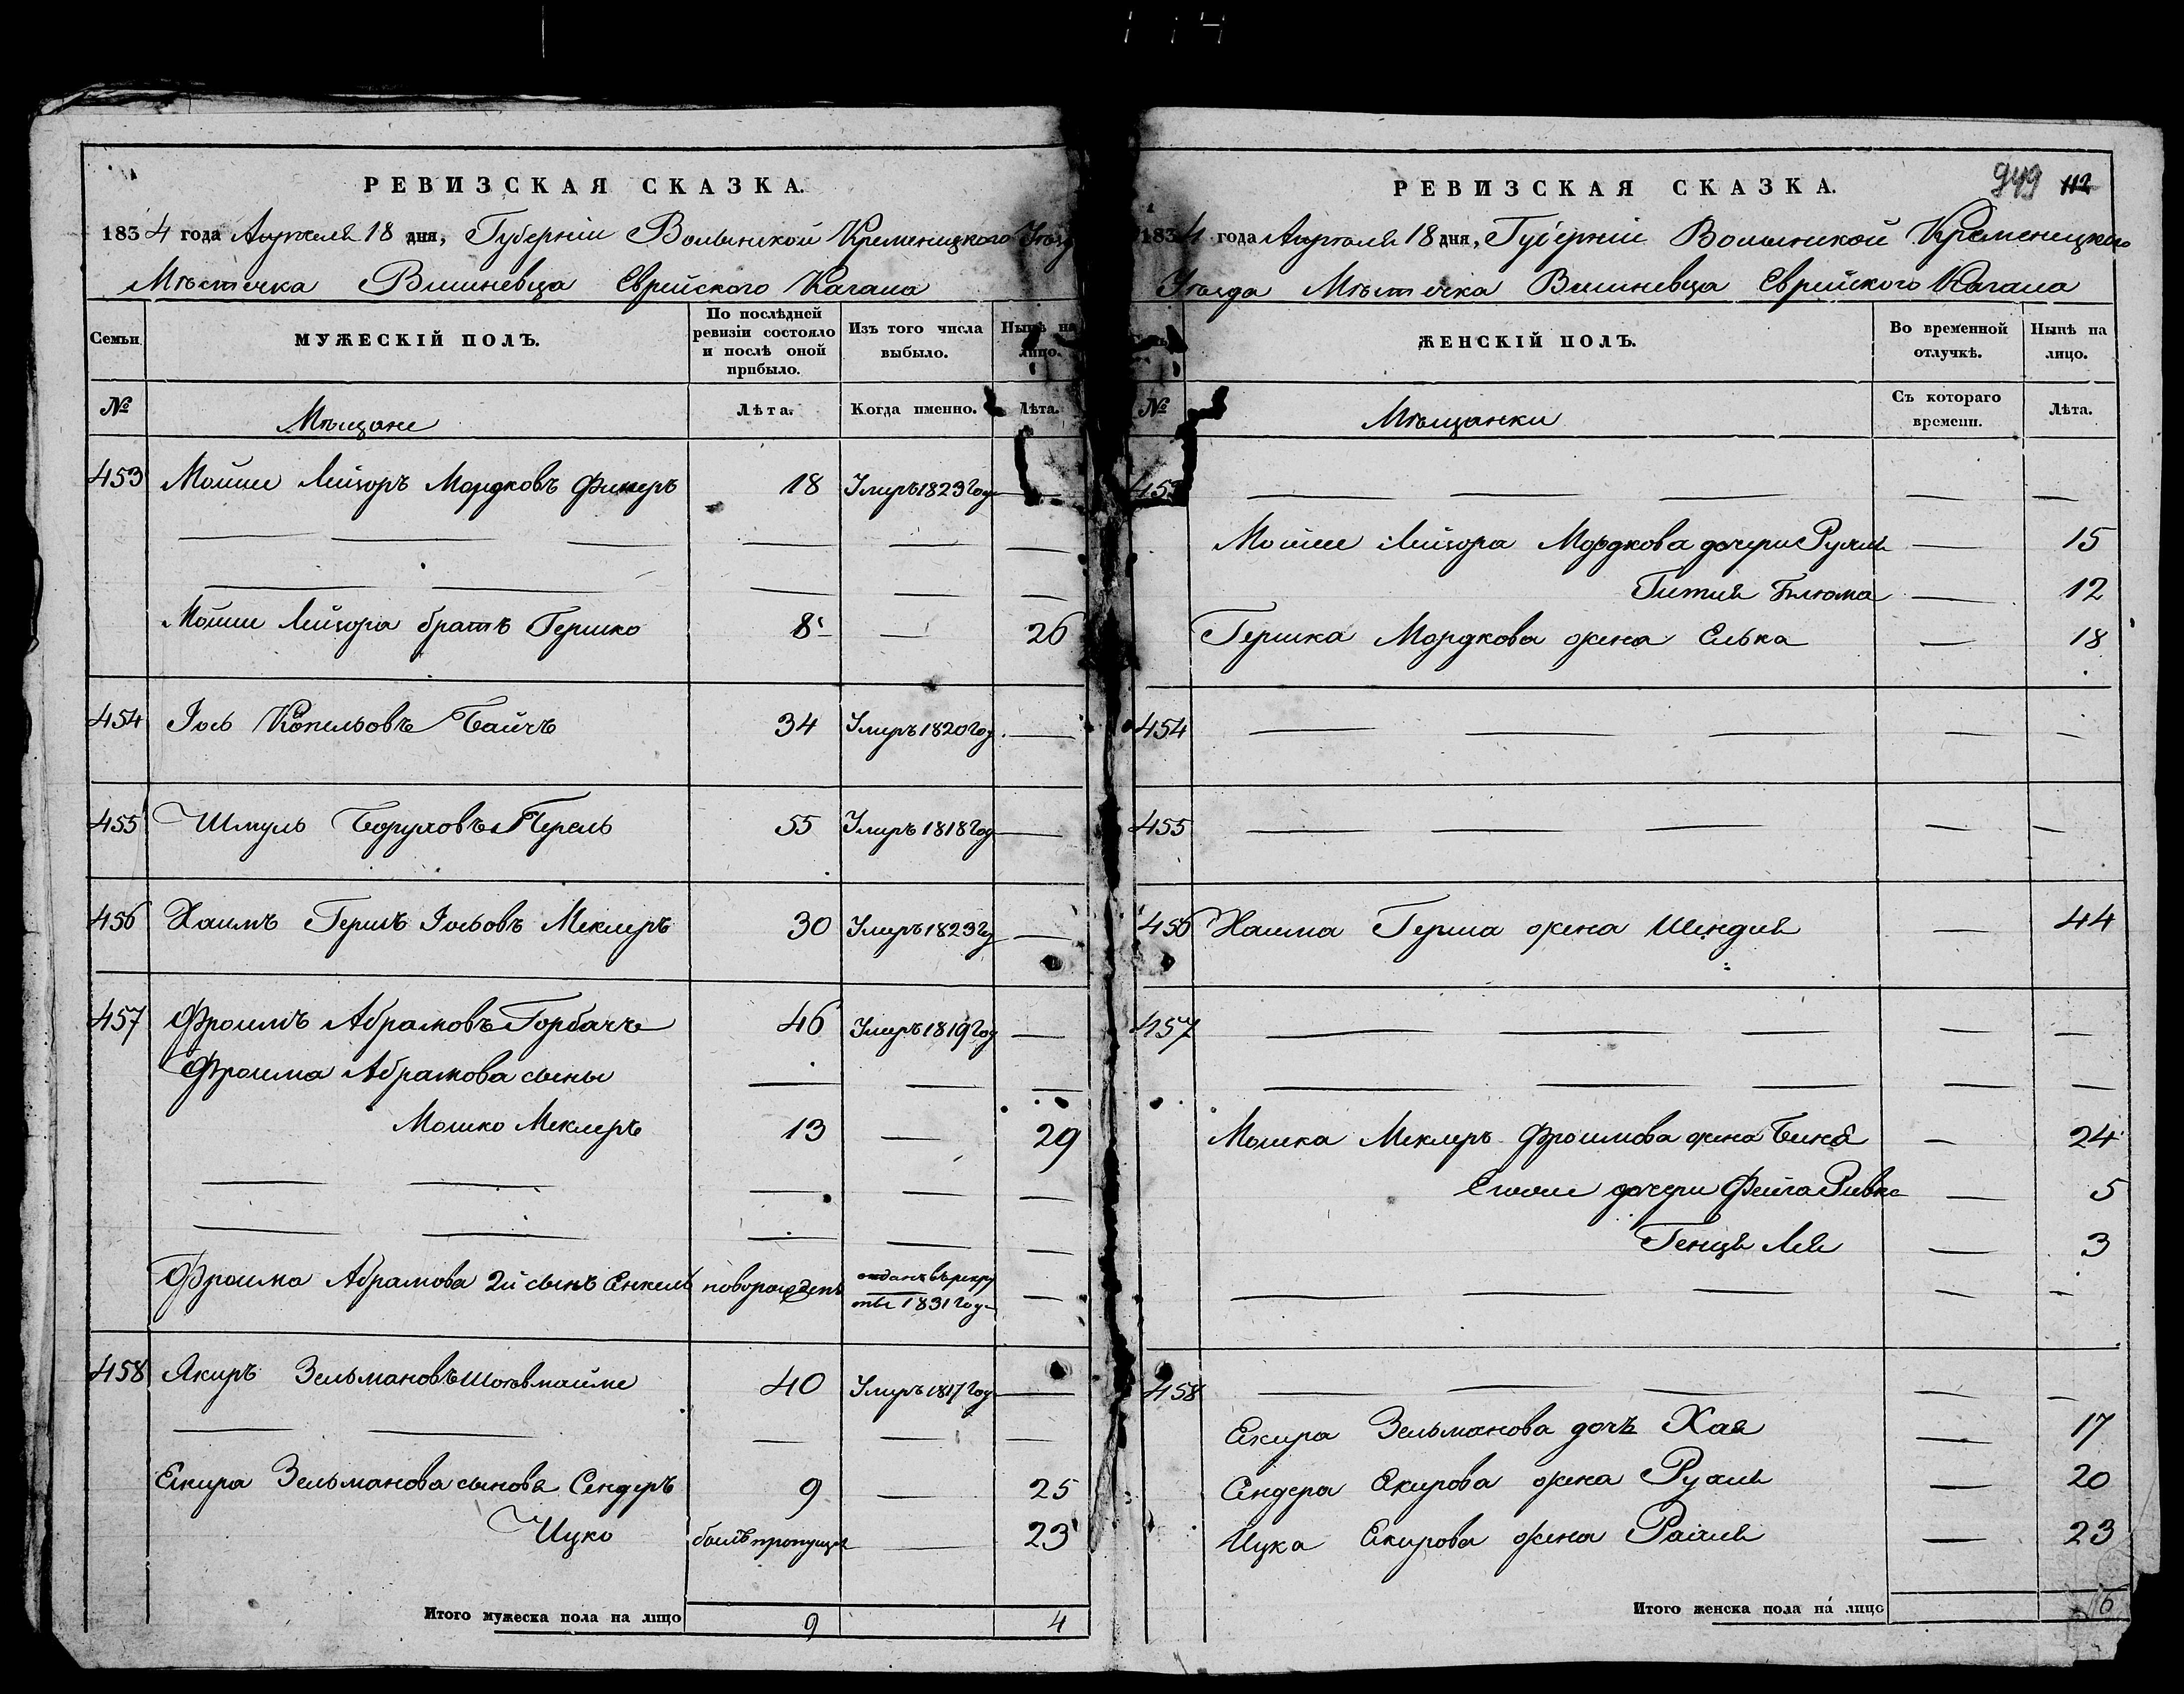 РЕВИЗСКАЯ СКАЗКА.
1834 года Апреля 18 дня, Губерніи Волынской Кременецкого Уѣзда
Мѣстечка Вишневца Еврейского Кагала
Семьи
МУЖЕСКІЙ ПОЛЪ.
По послѣдней ревизіи состояло и послѣ оной прибыло.
Изъ того числа выбыло.
Нынѣ на лицо.
№
Мѣщане
Лѣта.
Когда именно.
Лѣта.
453 Мошне Лейзоръ Мордковъ 18 Умеръ 1823 Года —
— — — — — —
— — — — —
Мошне Лейзора братъ Гершко 8 — 26
454 Іось Копельовъ 34 Умеръ 1820 Год. —
455 Шмуль Боруховъ Перель 55 Умеръ 1818 Год —
456 Хаимъ Гершъ Іосьовъ Меклеръ 30 Умеръ 1823 Год —
457 Фроимъ Абрамовъ Горбачъ 46 Умеръ 1819 Год —
Фроима Абрамова сыны — — —
Мошко Меклеръ 13 — 29
— — — — —
— — — — —
Фроима Абрамова 2й сынъ Янкель новорожденъ отданъ въ рекру
ты 1831 Года —
458 Якиръ Зельмановъ 40 Умеръ 1817 Год —
— — — — —
Екира Зельманова сыновя Сендеръ 9 — 25
Ицко былъ пропущен — 23
Итого мужеска пола на лицо 9 4
949 112
РЕВИЗСКАЯ СКАЗКА.
1834 года Апреля 18 дня, Губерніи Волынской Кременецкого
Уѣзда Мѣстечка Вишневца Еврейского Кагала
ЖЕНСКІЙ ПОЛЪ.
Во временной отлучкѣ.
Нынѣ на лицо.
№
Мѣщанки
Съ котораго времени.
Лѣта.
453 — — — — —
Мошне Лейзора Мордкова дочери Рухля — 15
Гитля Блюма — 12
Гершка Мордкова жена Елька — 18
454 — — — — —
455 — — — — —
456 Хаима Герша жена Шендля — 44
457 — — — — —
— — — — —
Мошка Меклеръ Фроимова жена Бина — 24
дочери Фейга Ривка — 5
Генця Лея — 3
— — — — —
458 — — — — —
Екира Зельманова дочь Хая — 17
Сендера Екирова жена Рухля — 20
Ицка Екирова жена Рахля — 23
Итого женска пола на лицо